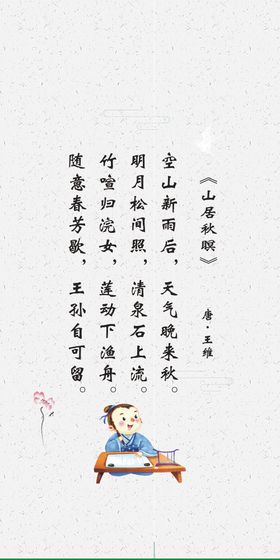 《山居秋暝》
唐·王维
空山新雨后，天气晚来秋。
明月松间照，清泉石上流。
竹喧归浣女，莲动下渔舟。
随意春芳歇，王孙自可留。